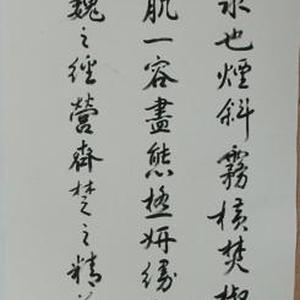 水也煙斜霧橫焚椒
肌一容盡態極妍縵
魏之經營齊楚之精英